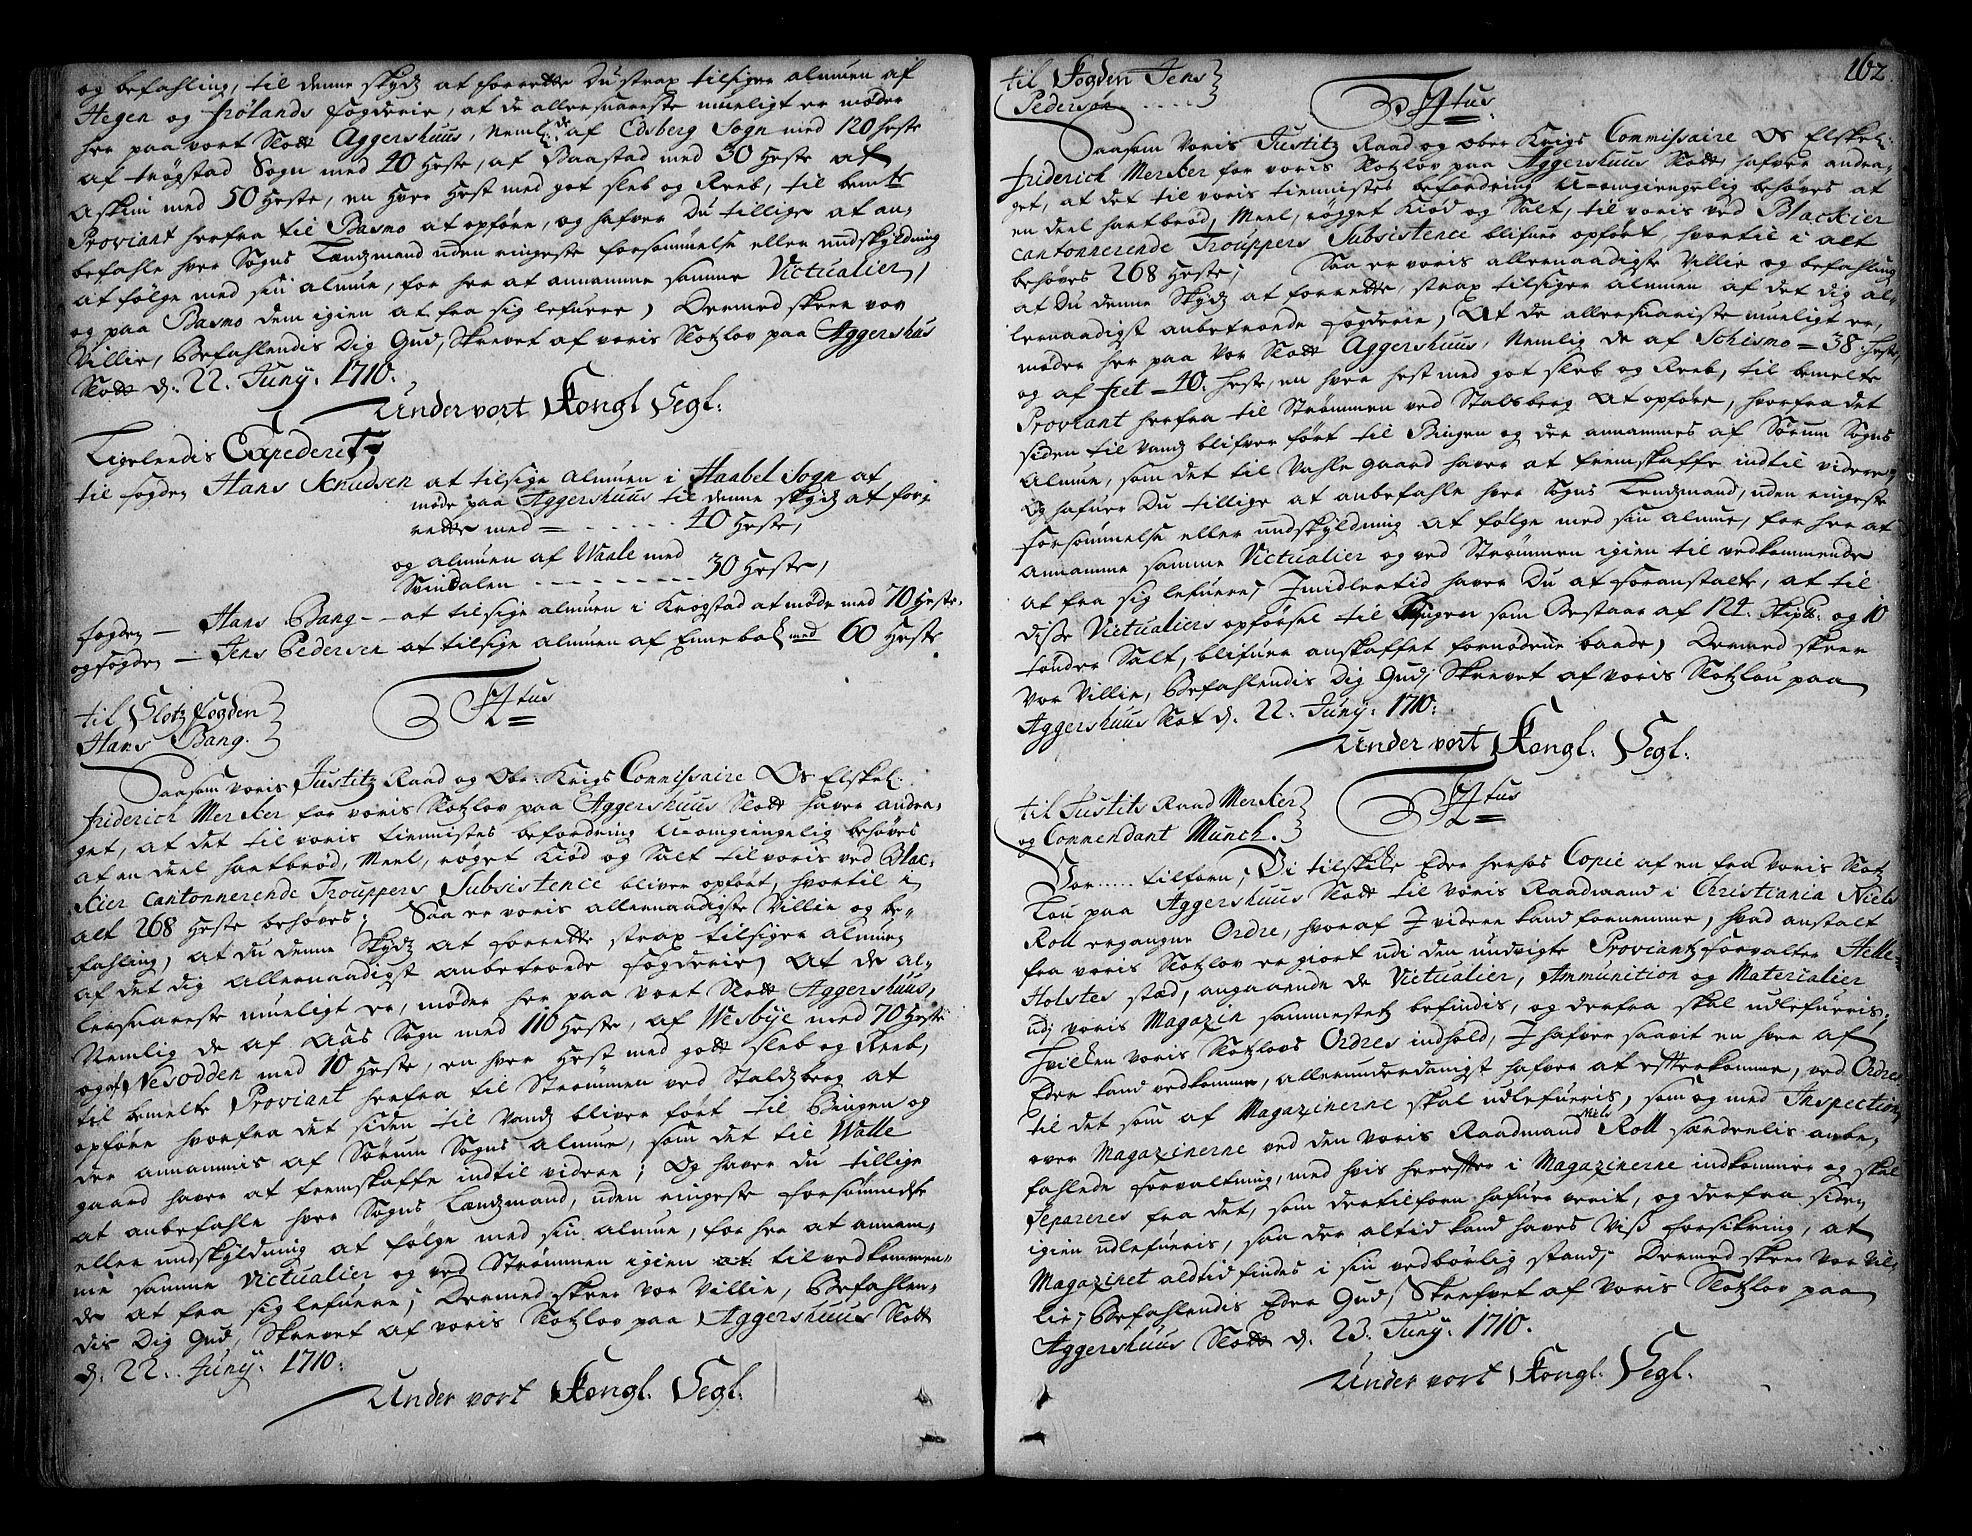 og befahling, til denne skydz at forrette Du strax tilsiger almuen af
Hegen og Frølands fogderie, at de allersnareste mueligt er møder
her paa vort Slott Aggershuus, Neml: de af Edsberg Sogn med 120 heste
af trøgstad Sogn med 40 Heste, af Baastad med 30 Heste af
Askim med 50 Heste, en hver Hest med got sleb og Reeb, til bemte
Proviant herfra til Basmo at opføre, og hafver Du tillige at an-
befahle hver Sogns Lendzmand uden ringeste forsømmelse eller undskyldning
at følge med sin almue, for her at annamme samme Victualier,
og paa Basmo dem igien at fra sig lefvere, Dermed skeer vor
Villie, Befahlendis Dig Gud, Skrevet af voris Slotzlov paa Aggershus
Slott d: 22. Junij. 1710.
Under vort Kongl Segl:
Ligelendis Expederit,
til fogden Hans Knudsen at tilsige almuen i Haabel Sogn at
møde paa Aggershuus til denne skydz at for-
rette med - - - - - 40 Heste,
og almuen af Waale med
Svindalen - - - - - 30 Heste,
fogden - Hans Bang - at tilsige almuen i Krogstad at møde med 70 Heste.
og fogden - Jens Pedersen at tilsige almuen af Ennebak med 60 Heste.
F4tus
til Slotz Fogden
Hans Bang.
Saasom voris Justitz Raad og Obr: Krigs Commissaire Os Elskel:
Friderich Merker for voris Slotzlov paa Aggershuus Slott haver andra-
get, at det til voris tiennistes befordring u-omgiengelig behøves
at en deel hartbrød, Meel, røget Kiød og Salt til voris ved Blac-
kier cantonnerende Trouppers Subsistence bliver opført, hvortil i
alt 268 Heste behøves; Saa er voris allernaadigste Villie og be-
fahling, at du denne Skydz at forrette strax tilsiger almuen
af det dig allernaadigst anbetroede fogderie, At de al-
lersnareste mueligt er, møder her paa vort Slott Aggershuus,
Nemlig de af Aas Sogn med 110 Heste, af Wesbye med 70 Heste
og af Nesodden med 10 Heste, en hver Hest med godt sleb og Reeb,
til bemelte Proviant herfra til Strømmen ved Staldzberg at
opføre hvorfra det siden til Vandz bliver ført til Bingen og
der annammis af Sørum Sogns almue, som det til Walle
gaard haver at fremskaffe indtil videre; Og haver du tillige
at anbefahle hver Sogns Lendzmand, uden ringeste forsømmelse
eller undskyldning at følge med sin almue, for her at annam-
me samme Victualier og ved Strømmen igien at til vedkommen-
de at fra sig lefvere; Dermed skeer vor Villie, Befahlen-
dis Dig Gud, Skrevet af voris Slotzlov paa Aggershuus Slott
d: 22. Junij. 1710.
Under vort Kongl. Segl.
162.
til Fogden Jens
Pedersøn - - - -
F4tus
Saasom Voris Justitz Raad og ober Krigs Commissaire Os Elskel:
Friderich Merker for voris Slotzlov paa Aggershuus Slott, hafver andra-
get, at det til voris tiennistes befordring u-omgiengelig behøves at
en deel hartbrød, Meel, røgget Kiød og Salt, til voris ved Blackier
cantonnerende Trouppers Subsistence blifver opført, hvortil i alt
behøves 268 Heste; Saa er voris allernaadigste Villie og befahling
at Du denne Skydz at forrette, strax tilsiger almuen af det dig al-
lernaadigst anbetroede fogderie, At de allersnariste mueligt er,
møder her paa Vor Slott Aggershuus, Nemlig de af Schismo - 38: heste,
og af Feet - 40. Heste, en hver hest med got sleb og Reeb, til bemelte
Proviant herfra til Strømmen ved Stalsberg at opføre, hvorfra det
siden til Vandz blifver ført til Bingen og der annammes af Sørum Sogns
Almue, som det til Vahle gaard haver at fremskaffe indtil videre,
Og hafver Du tillige at anbefahle hver Sogns Lendzmand, uden ringeste
forsømmelse eller undskyldning at følge med sin almue, for her at
annamme samme Victualier og ved Strømmen igien til vedkommende
at fra sig lefvere, Imidlertid haver Du at foranstalte, at til
disse Victualiers opførsel til Bingen som Bestaar af 124. Skip℔. og 10
tønder Salt, blifver anskaffet fornødene baade, Dermed skeer
Vor Villie, Befahlendis Dig Gud, Skrevet af voris Slotzlov paa
Aggershuus Slot d. 22. Junij. 1710:
Under vort Kongl. Segl.
til Justits Raad Merker
og Commendant Munch.
F4tus
Vor..... tilforn, Vi tilskikke Eder herhos Copie af en fra Voris Slotz
Lov paa Aggershuus Slott til voris Raadmand i Christiania Niels
Roll ergangne Ordre, hvoraf I videre kand fornemme, hvad anstalt
fra voris Slotzlov er giort udi den undvigte Proviantz forvalter Helle-
Holstes stad, angaaende de Victualier, Ammunition og Materialier
udj voris Magazin sammestetz befindis, og derfra skal udlefveris;
Hvilken voris Slotzlovs Ordres indhold, I hafver saavit en hver af
Eder kand vedkomme, allerunderdanigst hafver at efterkomme, ved Ordres
til det som af Magazinerne skal udlefveris, som og med Inspection
over Magazinerne ved den Voris Raadmand Niels Roll særdeelis anbe-
fahlede forvaltning, med hvis herefter i Magazinerne indkommer og skal
Separeres fra det, som dertilforn hafver verit, og derfra siden
igien udlefveris, saa der altid kand haves Viss forsikring, at
Magazinet aldtid findes i sin vedbørlig stand; Dermed skeer Vor Vil-
lie, Befahlendis Eder Gud, Skrefvet af Voris Slotzlov paa
Aggershuus Slott d: 23. Junij. 1710.
Under vort Kongl. Segl.